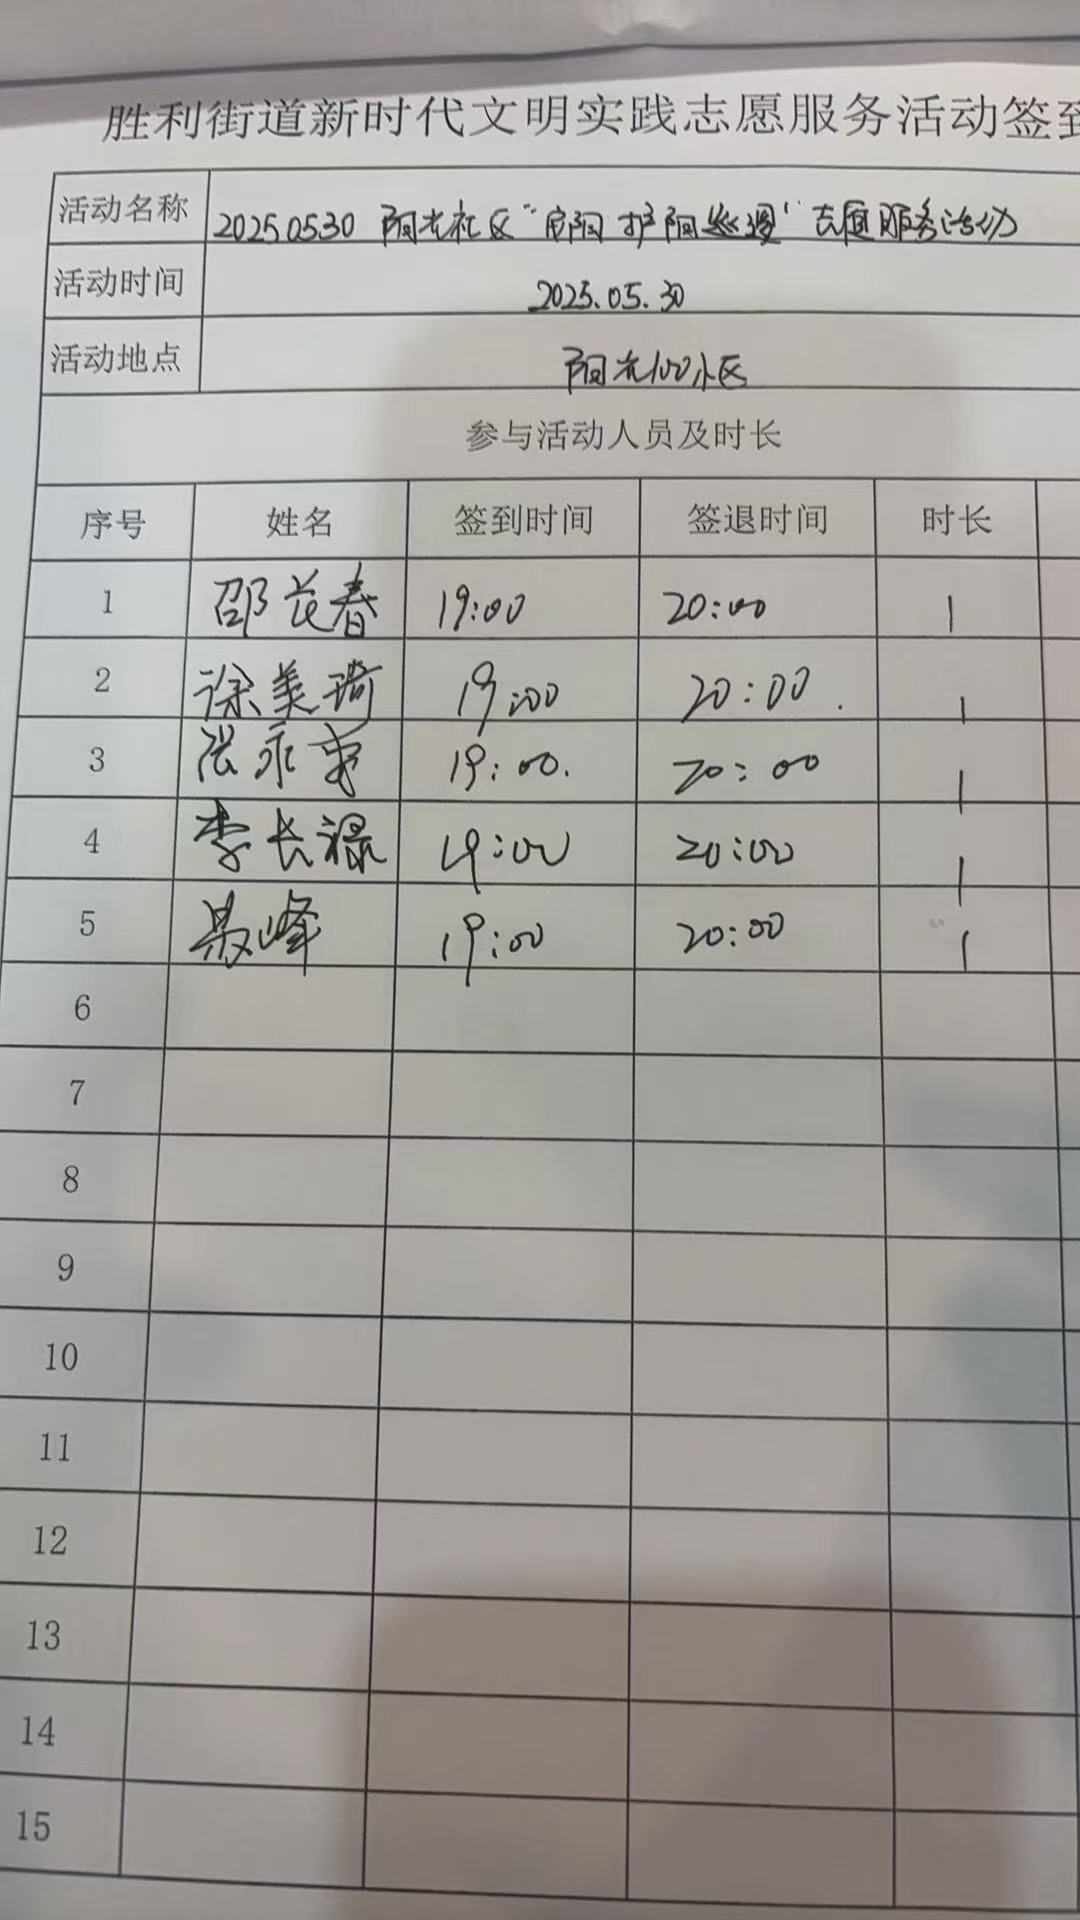 胜利街道新时代文明实践志愿服务活动签到
活动名称 20250530 阳光社区“阳护阳巡逻”志愿服务活动
活动时间 2025.05.30
活动地点 阳光100小区
参与活动人员及时长
序号 姓名 签到时间 签退时间 时长
1 邵长春 19:00 20:00 1
2 徐美琦 19:00 20:00. 1
3 张永 19:00. 20:00 1
4 李长禄 19:00 20:00 1
5 峰 19:00 20:00 1
6
7
8
9
10
11
12
13
14
15